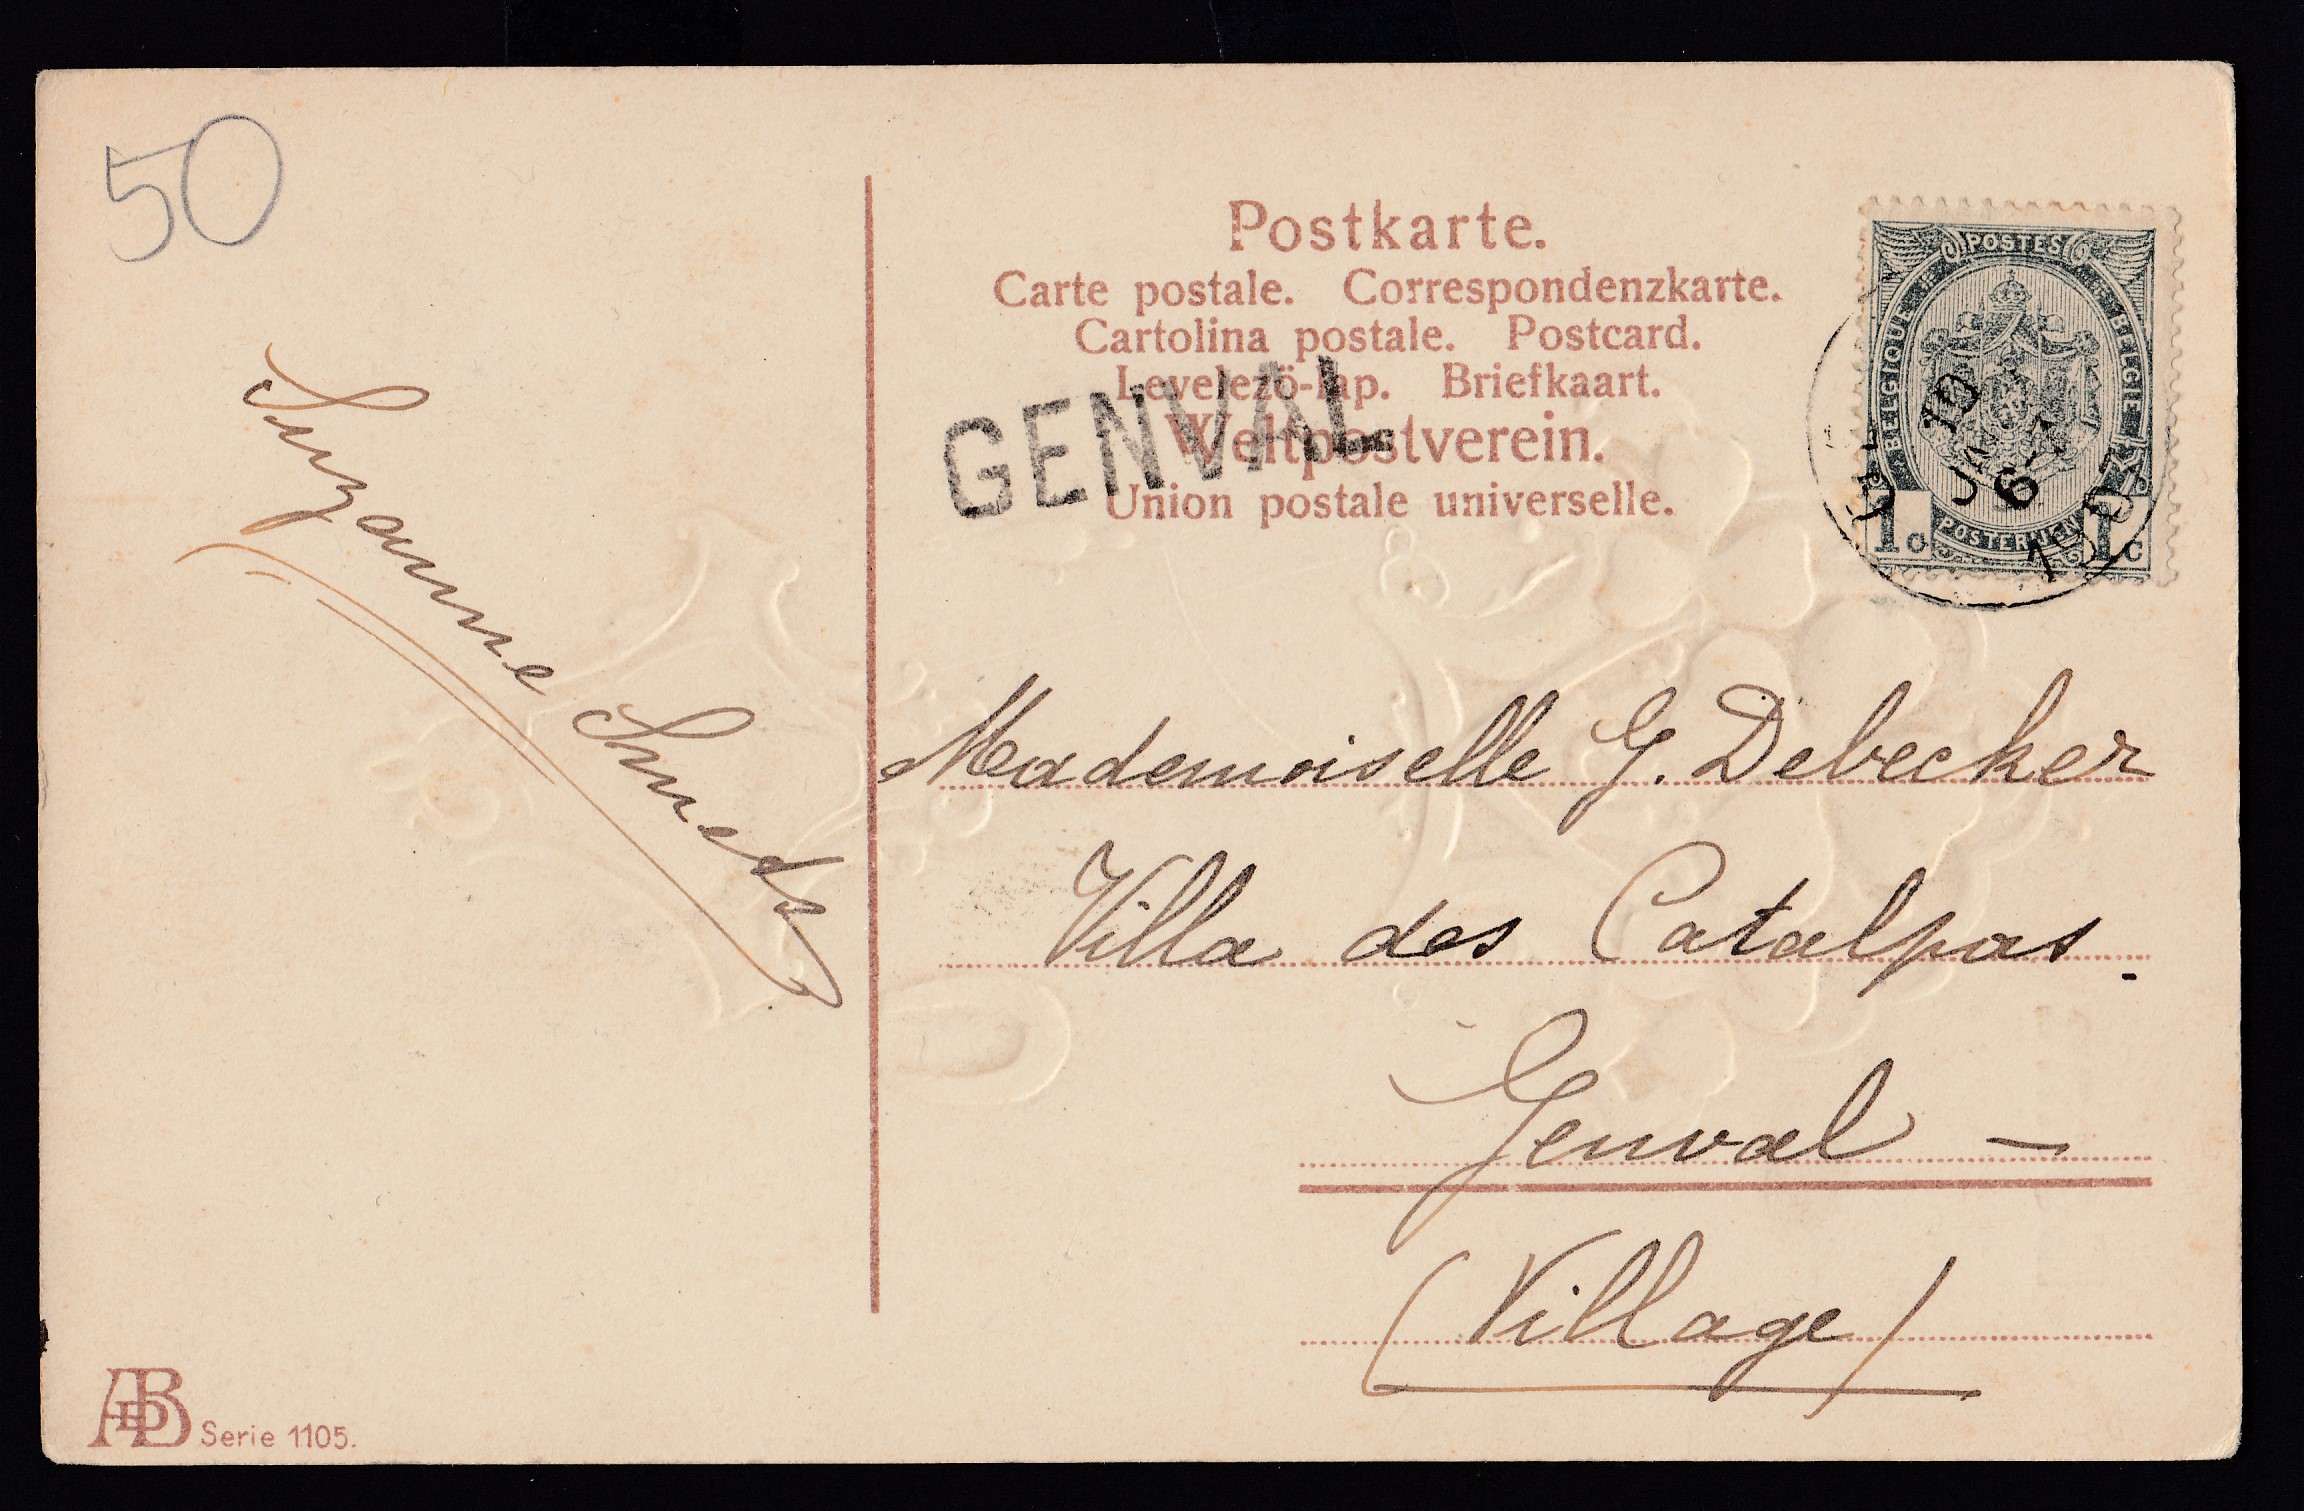 50
Postkarte.
Carte postale. Correspondenzkarte.
Cartolina postale. Postcard.
Levelezö-lap. Briefkaart.
Weltpostverein.
Union postale universelle.
GENVAL
POSTES
BELGIQUE BELGIE
POSTERIJEN
1c 1c
10
6-7
Suzanne Smedts
Mademoiselle G. Debecker
Villa des Catalpas.
Genval -
(Village)
AB Serie 1105.